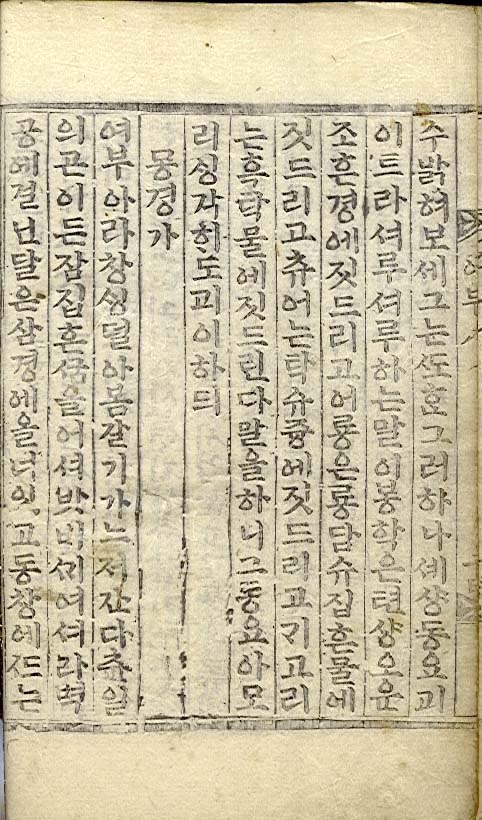 수밝혀보세그는ᄯᅩ효그러하나세상동요괴
이트라셔루셔루하는말이봉학은텬상오운
조흔경에짓드리고어룡은동담슈집흔물에
짓드리고츄어는탁슈즁에짓드리고기고리
는후탁물에짓드린다말을하니그동요아모
리싱각히도괴이하듸
몽경가
여부아라창싱덜아몸갈기가느져간다츈일
의곤이든잠집흔ᄭᅮᆷ을어셔밧비ᄭᆡ여셔라벽
공에결닌달은삼경에올나잇고동창에ᄯᅳ는